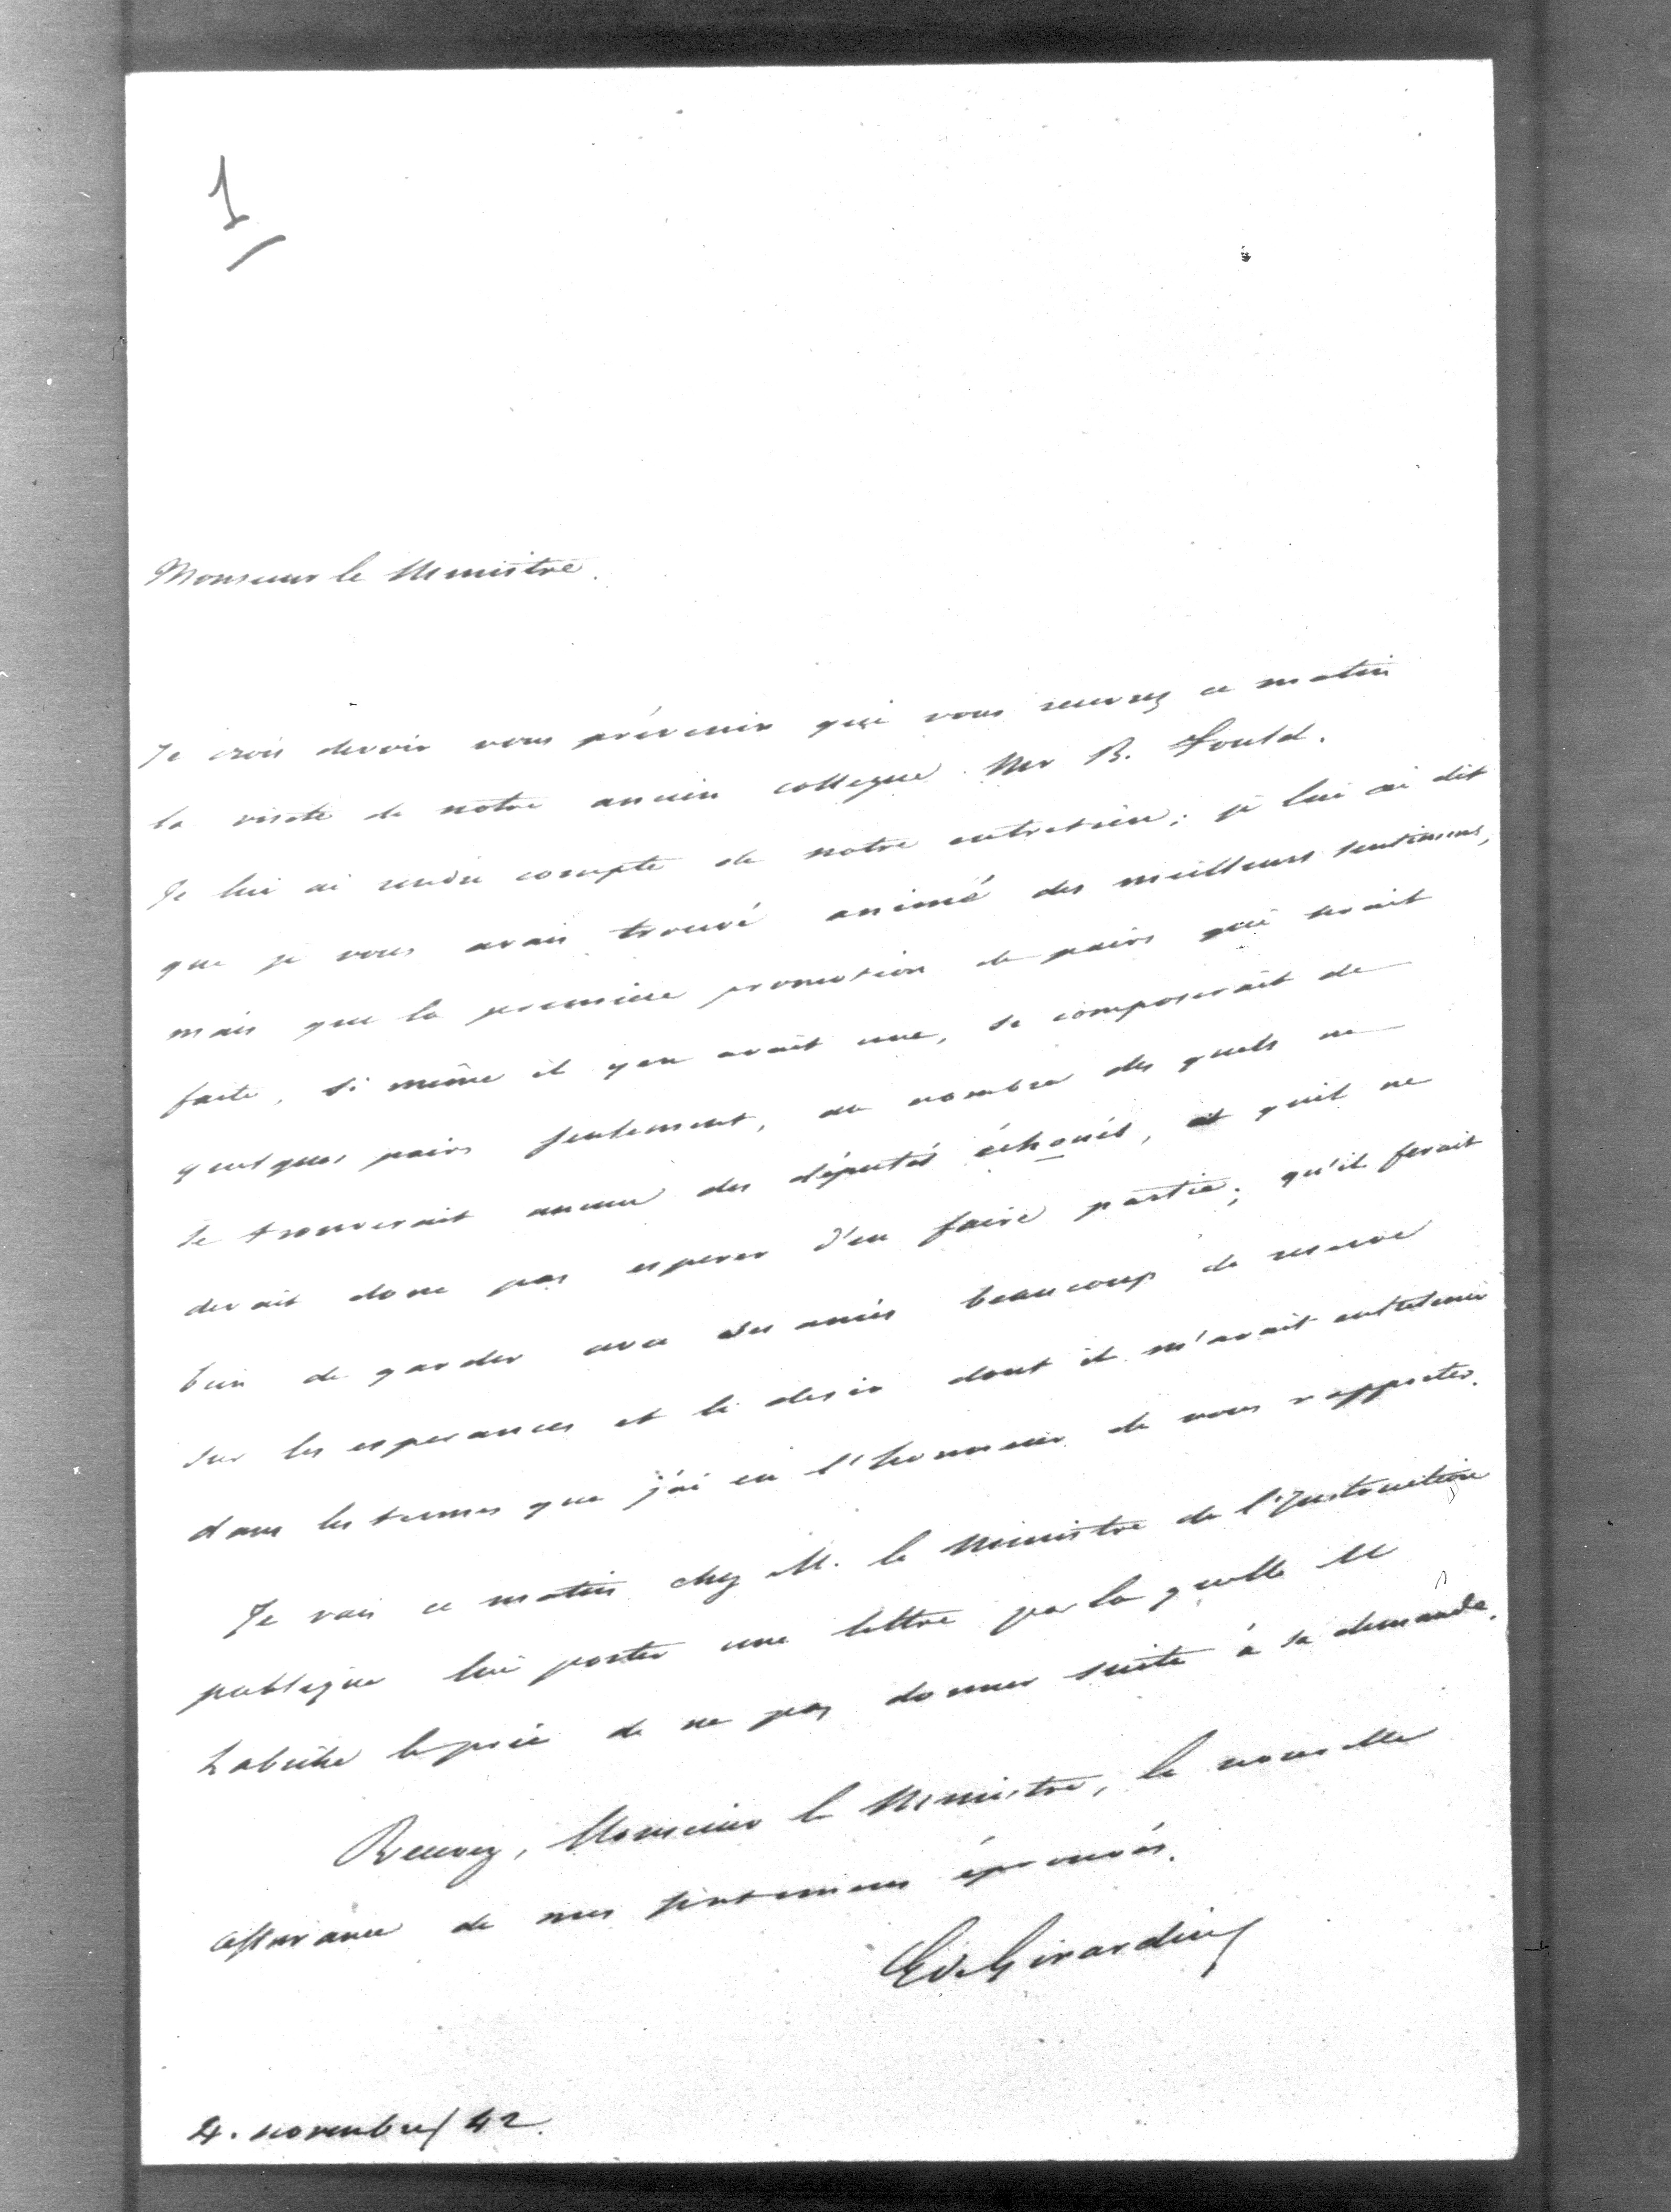 1
Monsieur le Ministre.
Je crois devoir vous prévenir que vous recevrez ce matin
la visite de notre ancien collegue Mr B. Fould.
Je lui ai rendu compte de notre entretien; je lui ai dit
que je vous avais trouvé animé des meilleurs sentimens,
mais que la premiere promotion de pairs qui serait
faite, si même il y en avait une, se composerait de
quelques pairs seulement, au nombre des quels ne
se trouverait aucun des députés échoués, et qu'il ne
devait donc pas esperer d'en faire partie; qu'il ferait
bien de garder avec ses amis beaucoup de reserve
sur les esperances et le desir dont il m'avait entretenu
dans les termes que j'ai eu l'honneur de vous rapporter.
Je vais ce matin chez M. le Ministre de l'Instruction
publique lui porter une lettre par la quelle M
le prie de ne pas donner suite à sa demande.
Recevez, Monsieur le Ministre, la nouvelle
assurance de mes sentimens éprouvés.
E. de Girardin
4. novembre 42.